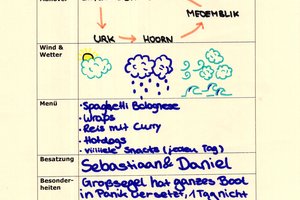 Manöver
MEDEMBLIK
URK → HOORN
Wind &
Wetter
Menü
• Spaghetti Bolognese
• Wraps
• Reis mit Curry
• Hotdogs
• viiiiele Snacks (jeden Tag)
Besatzung
Sebastiaan & Daniel
Besonder-
heiten
Großsegel hat ganzes Boot
in Panik versetzt, 1 Tag nicht